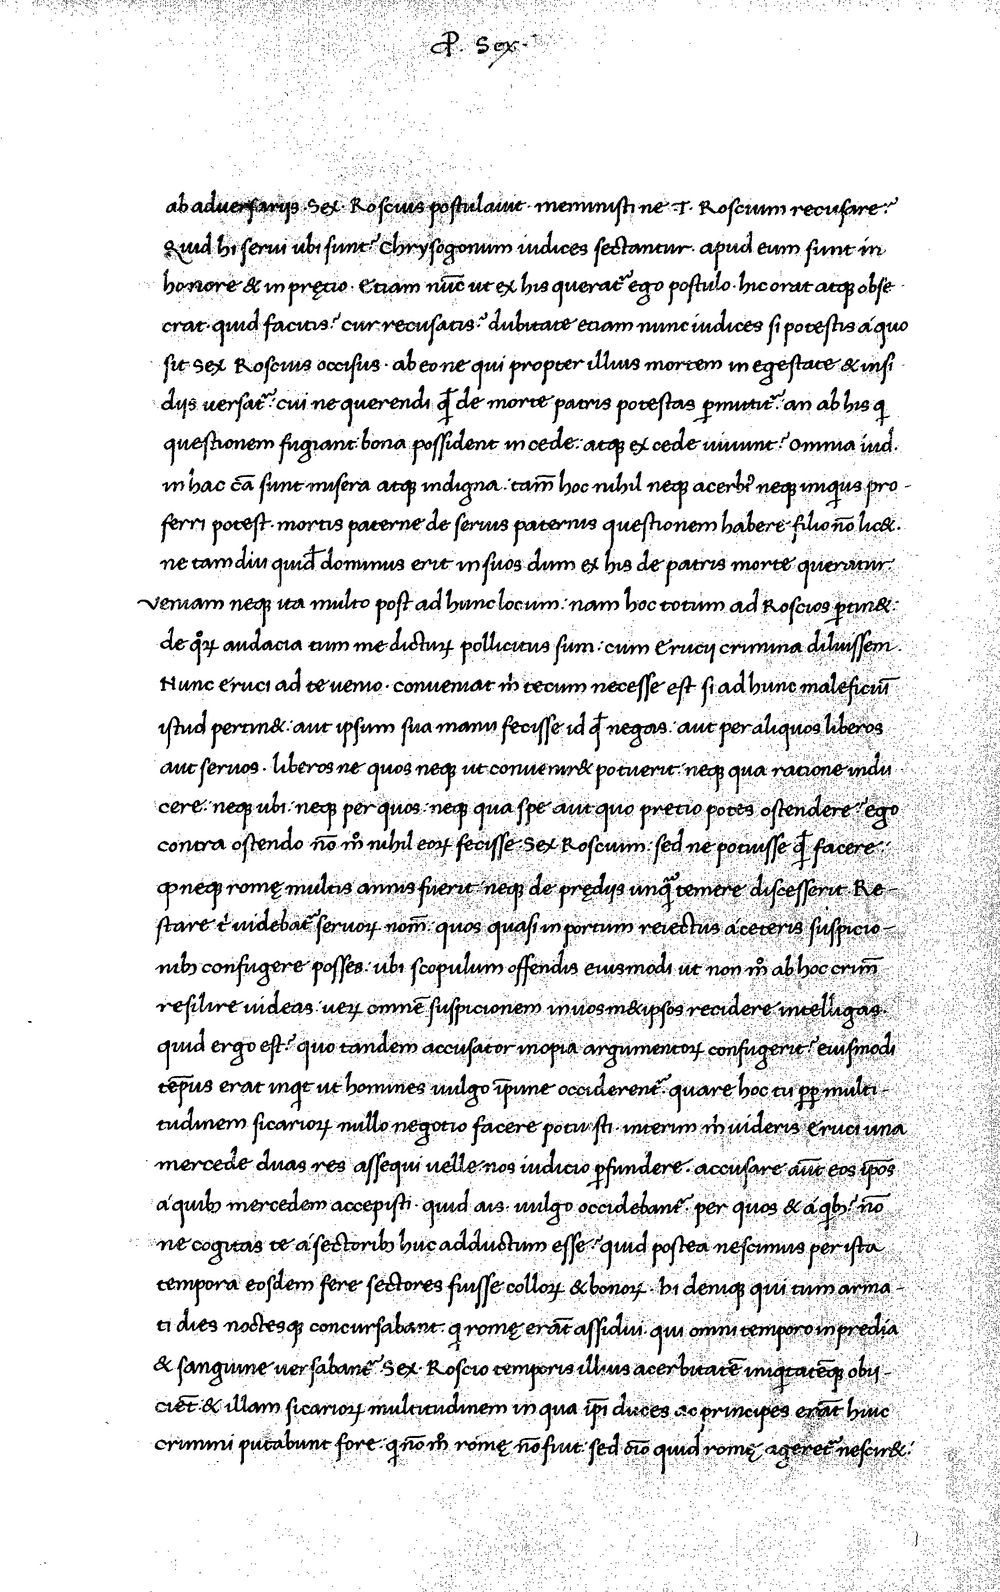 ꝓ. Sex.
ab aduersarijs Sex. Roscius postulauit. meministi ne T. Roscium recusare?
Quid hi serui ubi sunt? Chrysogonum iudices sectantur. apud eum sunt in
honore & in pręcio. Etiam nūc ut ex his querat᷑ ego postulo. hic orat atqꝫ obse
crat. quid facitis? cur recusatis? dubitate etiam nunc iudices si potestis á quo
sit Sex Roscius occisus. ab eo ne qui propter illius mortem in egestate & insi
dijs uersat᷑? cui ne querendi qd̄ de morte patris potestas ꝑmittit᷑? an ab his q̄
questionem fugiant: bona possident in cede: atqꝫ ex cede uiuunt? Omnia iud.
in hac cā sunt misera atqꝫ indigna: tam̄ hoc nihil neqꝫ acerbi᷑ neqꝫ iniqͥus pro-
ferri potest. mortis paterne de seruis paternis questionem habere filio nō lic&.
ne tam diu quid̄ dominus erit in suos dum ex his de patris morte queratur.
Veniam neqꝫ ita multo post ad hunc locum: nam hoc totum ad Roscios ꝑtin&:
de qͦꝝ audacia tum me dicturꝫ pollicitus sum: cum Erucij crimina diluissem.
Nunc Eruci ad te uenio. conueniat m̄ tecum necesse est si ad hunc maleficiū
istud pertin&: aut ipsum sua manu fecisse id qd̄ negas: aut per aliquos liberos
aut seruos. liberos ne quos neqꝫ ut conuenir& potuerit: neqꝫ qua ratione indu
cere: neqꝫ ubi: neqꝫ per quos: neqꝫ qua spe aut quo precio potes ostendere? ego
contra ostendo nō mͦ nihil eoꝝ fecisse Sex Roscium: sed ne potuisse qd̄ facere:
ꝙ neqꝫ romę multis annis fuerit: neqꝫ de prędijs unqͣ̄ temere discesserit. Re-
stare t̄ uidebat᷑ seruoꝝ nom̄: quos quasi in portum reiectus á ceteris suspicio-
nibꝫ confugere posses: ubi scopulum offendis eiusmodi ut non mͦ ab hoc crim̄
resilire uideas: ueꝝ omnē suspicionem in uosm&ipsos recidere intelligas.
quid ergo est? quo tandem accusator inopia argumentoꝝ confugerit? eiusmodi
tēpus erat inqͥt ut homines uulgo īpune occiderent᷑. quare hoc tu ꝓp multi-
tudinem sicarioꝝ nullo negotio facere potuisti. interim m̄ uideris Eruci una
mercede duas res assequi uelle: nos iudicio ꝑfundere. accusare aūt eos ip̄os
á quibꝫ mercedem accepisti. quid ais. uulgo occidebant᷑. per quos & á qͥbꝫ? nō
ne cogitas te á sectoribꝫ huc adductum esse? quid postea nescimus per ista
tempora eosdem fere sectores fuisse colloꝝ & bonoꝝ. hi deniqꝫ qui tum arma-
ti dies noctesqꝫ concursabant. q̄ romę erāt assidui. qui omni tempore in predia
& sanguine uersabant᷑ Sex. Roscio temporis illius acerbitatē iniqͥtatēqꝫ obij-
ciēt: & illam sicarioꝝ multitudinem in qua ip̄i duces ac principes erāt huic
crimini putabunt fore. qͥ nō m̄ romę nō fuit: sed oīo quid romę ageret᷑ nescir&: